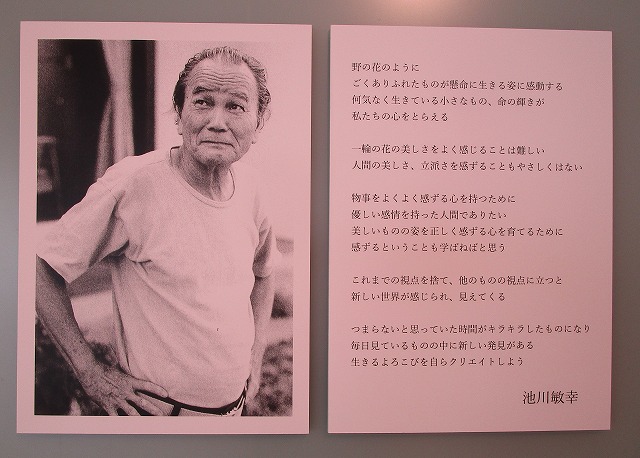 野の花のように
ごくありふれたものが懸命に生きる姿に感動する
何気なく生きている小さなもの、命の輝きが
私たちの心をとらえる
一輪の花の美しさをよく感じることは難しい
人間の美しさ、立派さを感ずることもやさしくはない
物事をよくよく感ずる心を持つために
優しい感情を持った人間でありたい
美しいものの姿を正しく感ずる心を育てるために
感ずるということも学ばねばと思う
これまでの視点を捨て、他のものの視点に立つと
新しい世界が感じられ、見えてくる
つまらないと思っていた時間がキラキラしたものになり
毎日見ているものの中に新しい発見がある
生きるよろこびを自らクリエイトしよう
池川敏幸